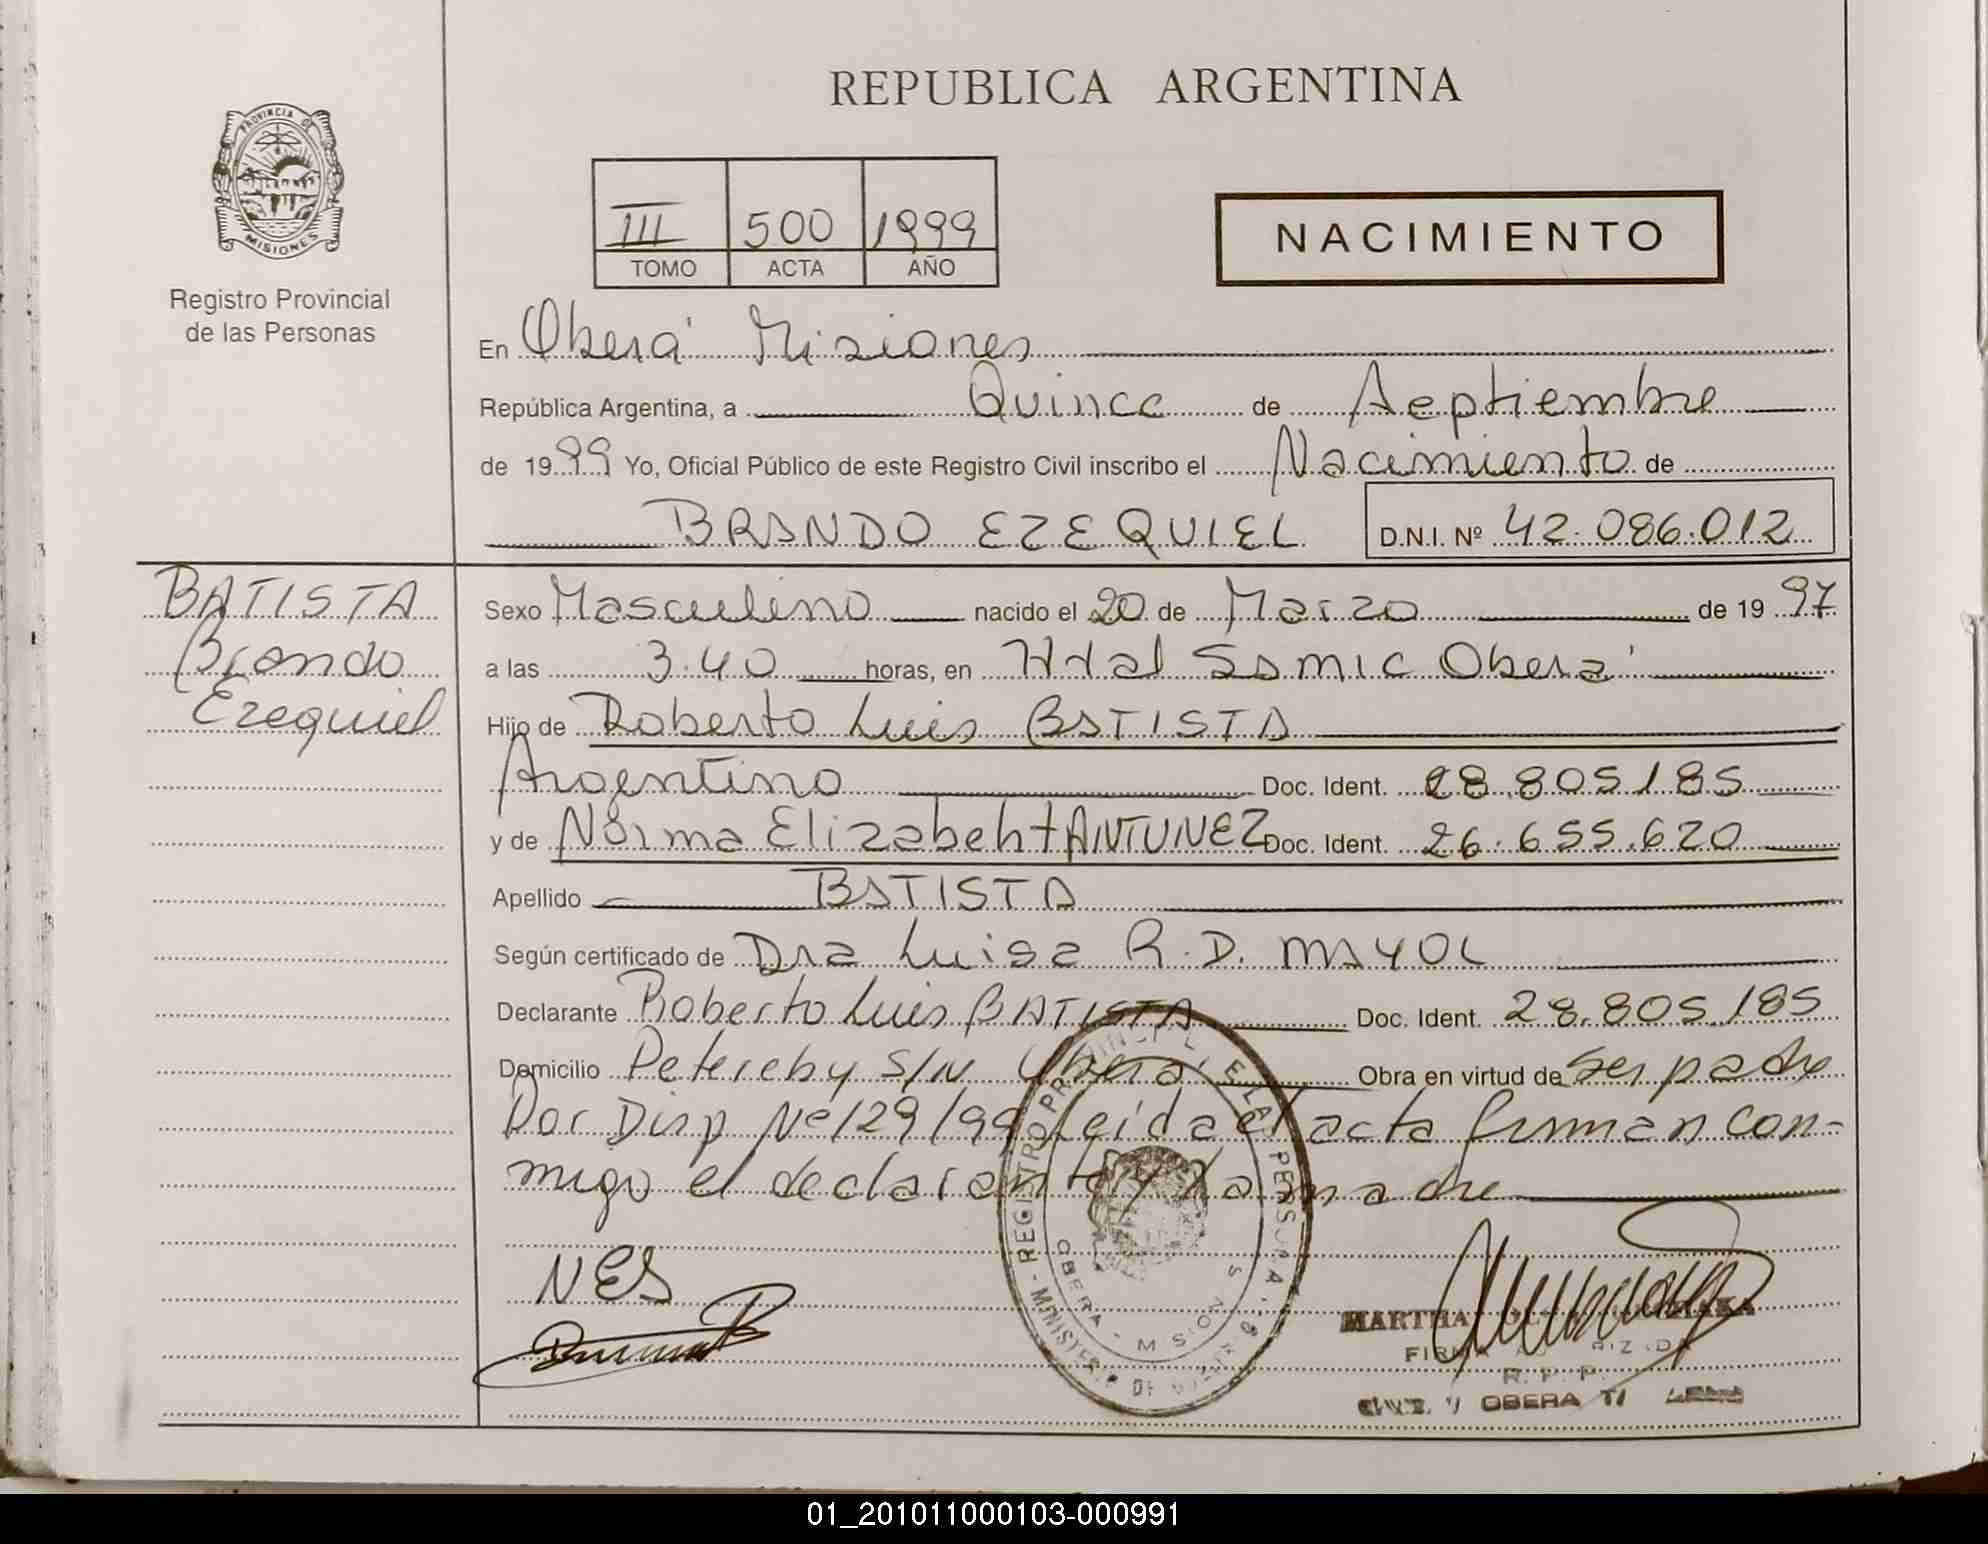 REPUBLICA ARGENTINA
PROVINCIA DE
MISIONES
Registro Provincial
de las Personas
III 500 1999
TOMO ACTA AÑO
NACIMIENTO
En Oberá Misiones
República Argentina, a Quince de Septiembre
de 1999 Yo, Oficial Público de este Registro Civil inscribo el Nacimiento de
BRANDO EZEQUIEL D.N.I. Nº 42.086.012
BATISTA
Brando
Ezequiel
Sexo Masculino nacido el 20 de Marzo de 1997
a las 3.40 horas, en Htal SAMIC Oberá
Hijo de Roberto Luis BATISTA
Argentino Doc. Ident. 28.805.185
y de Norma Elizabeht ANTUNEZ Doc. Ident. 26.655.620
Apellido BATISTA
Según certificado de Dra Luisa R.D. MAYOL
Declarante Roberto Luis BATISTA Doc. Ident. 28.805.185
Domicilio Petereby S/N Oberá Obra en virtud de ser padre
Por Disp Nº 129/99 leida el acta firman con-
migo el declarante y la madre
NES
REGISTRO PROVINCIAL DE LAS PERSONAS
MINISTERIO DE
OBERA - MISIONES
MARTHA
FIRMA AUTORIZADA
R. P. P.
OBERA
01_201011000103-000991